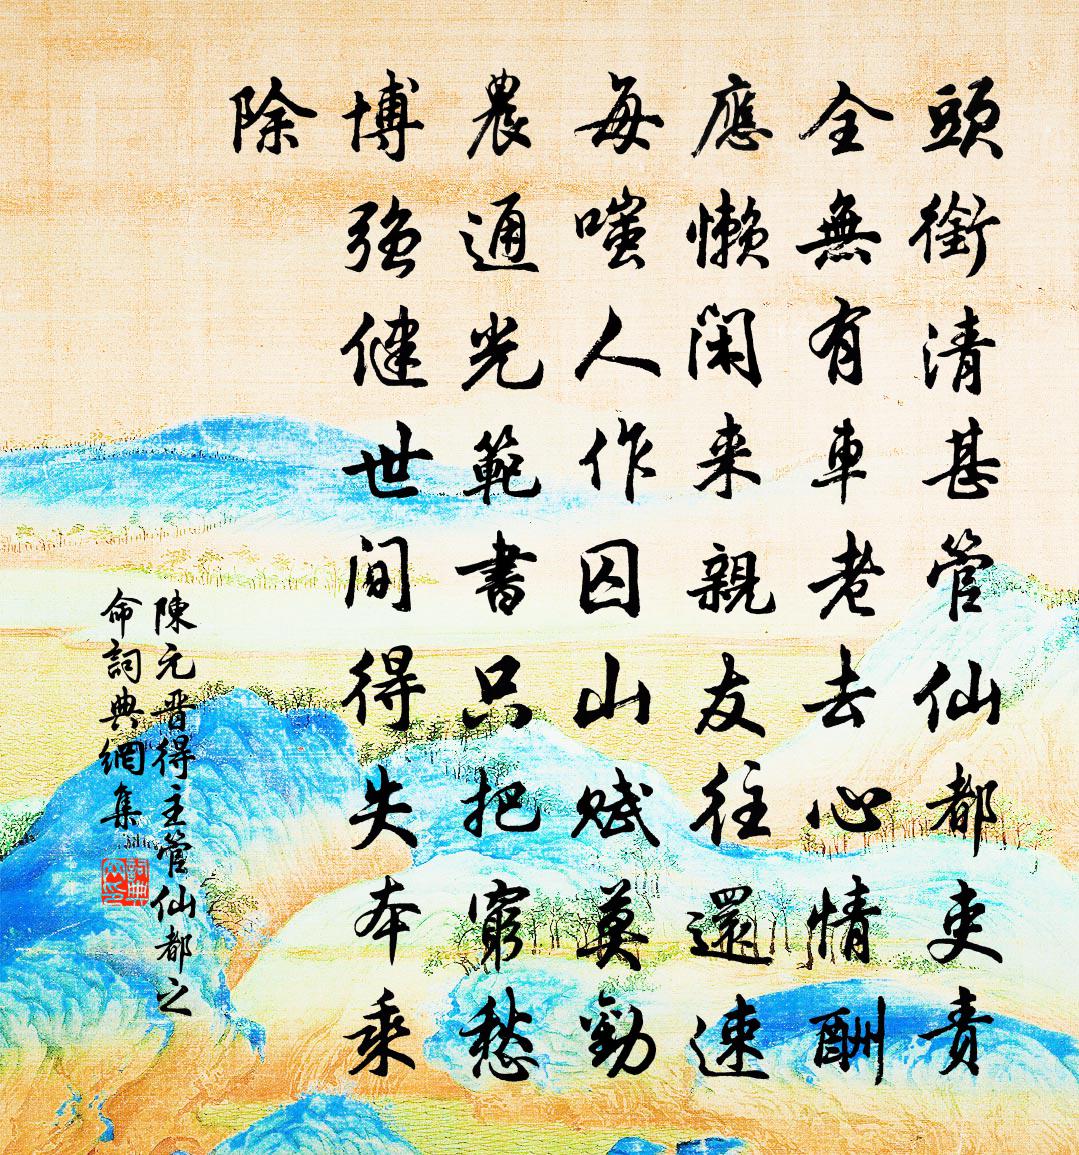 頭銜清甚管仙都吏責
全無有車老去心情酬
應懶閑来親友往還速
每嗤人作囚山賦莫勸
農通光範書只把窮愁
博强健世間得失本乘
除
陳元晋得主管仙都之
命詞典網集